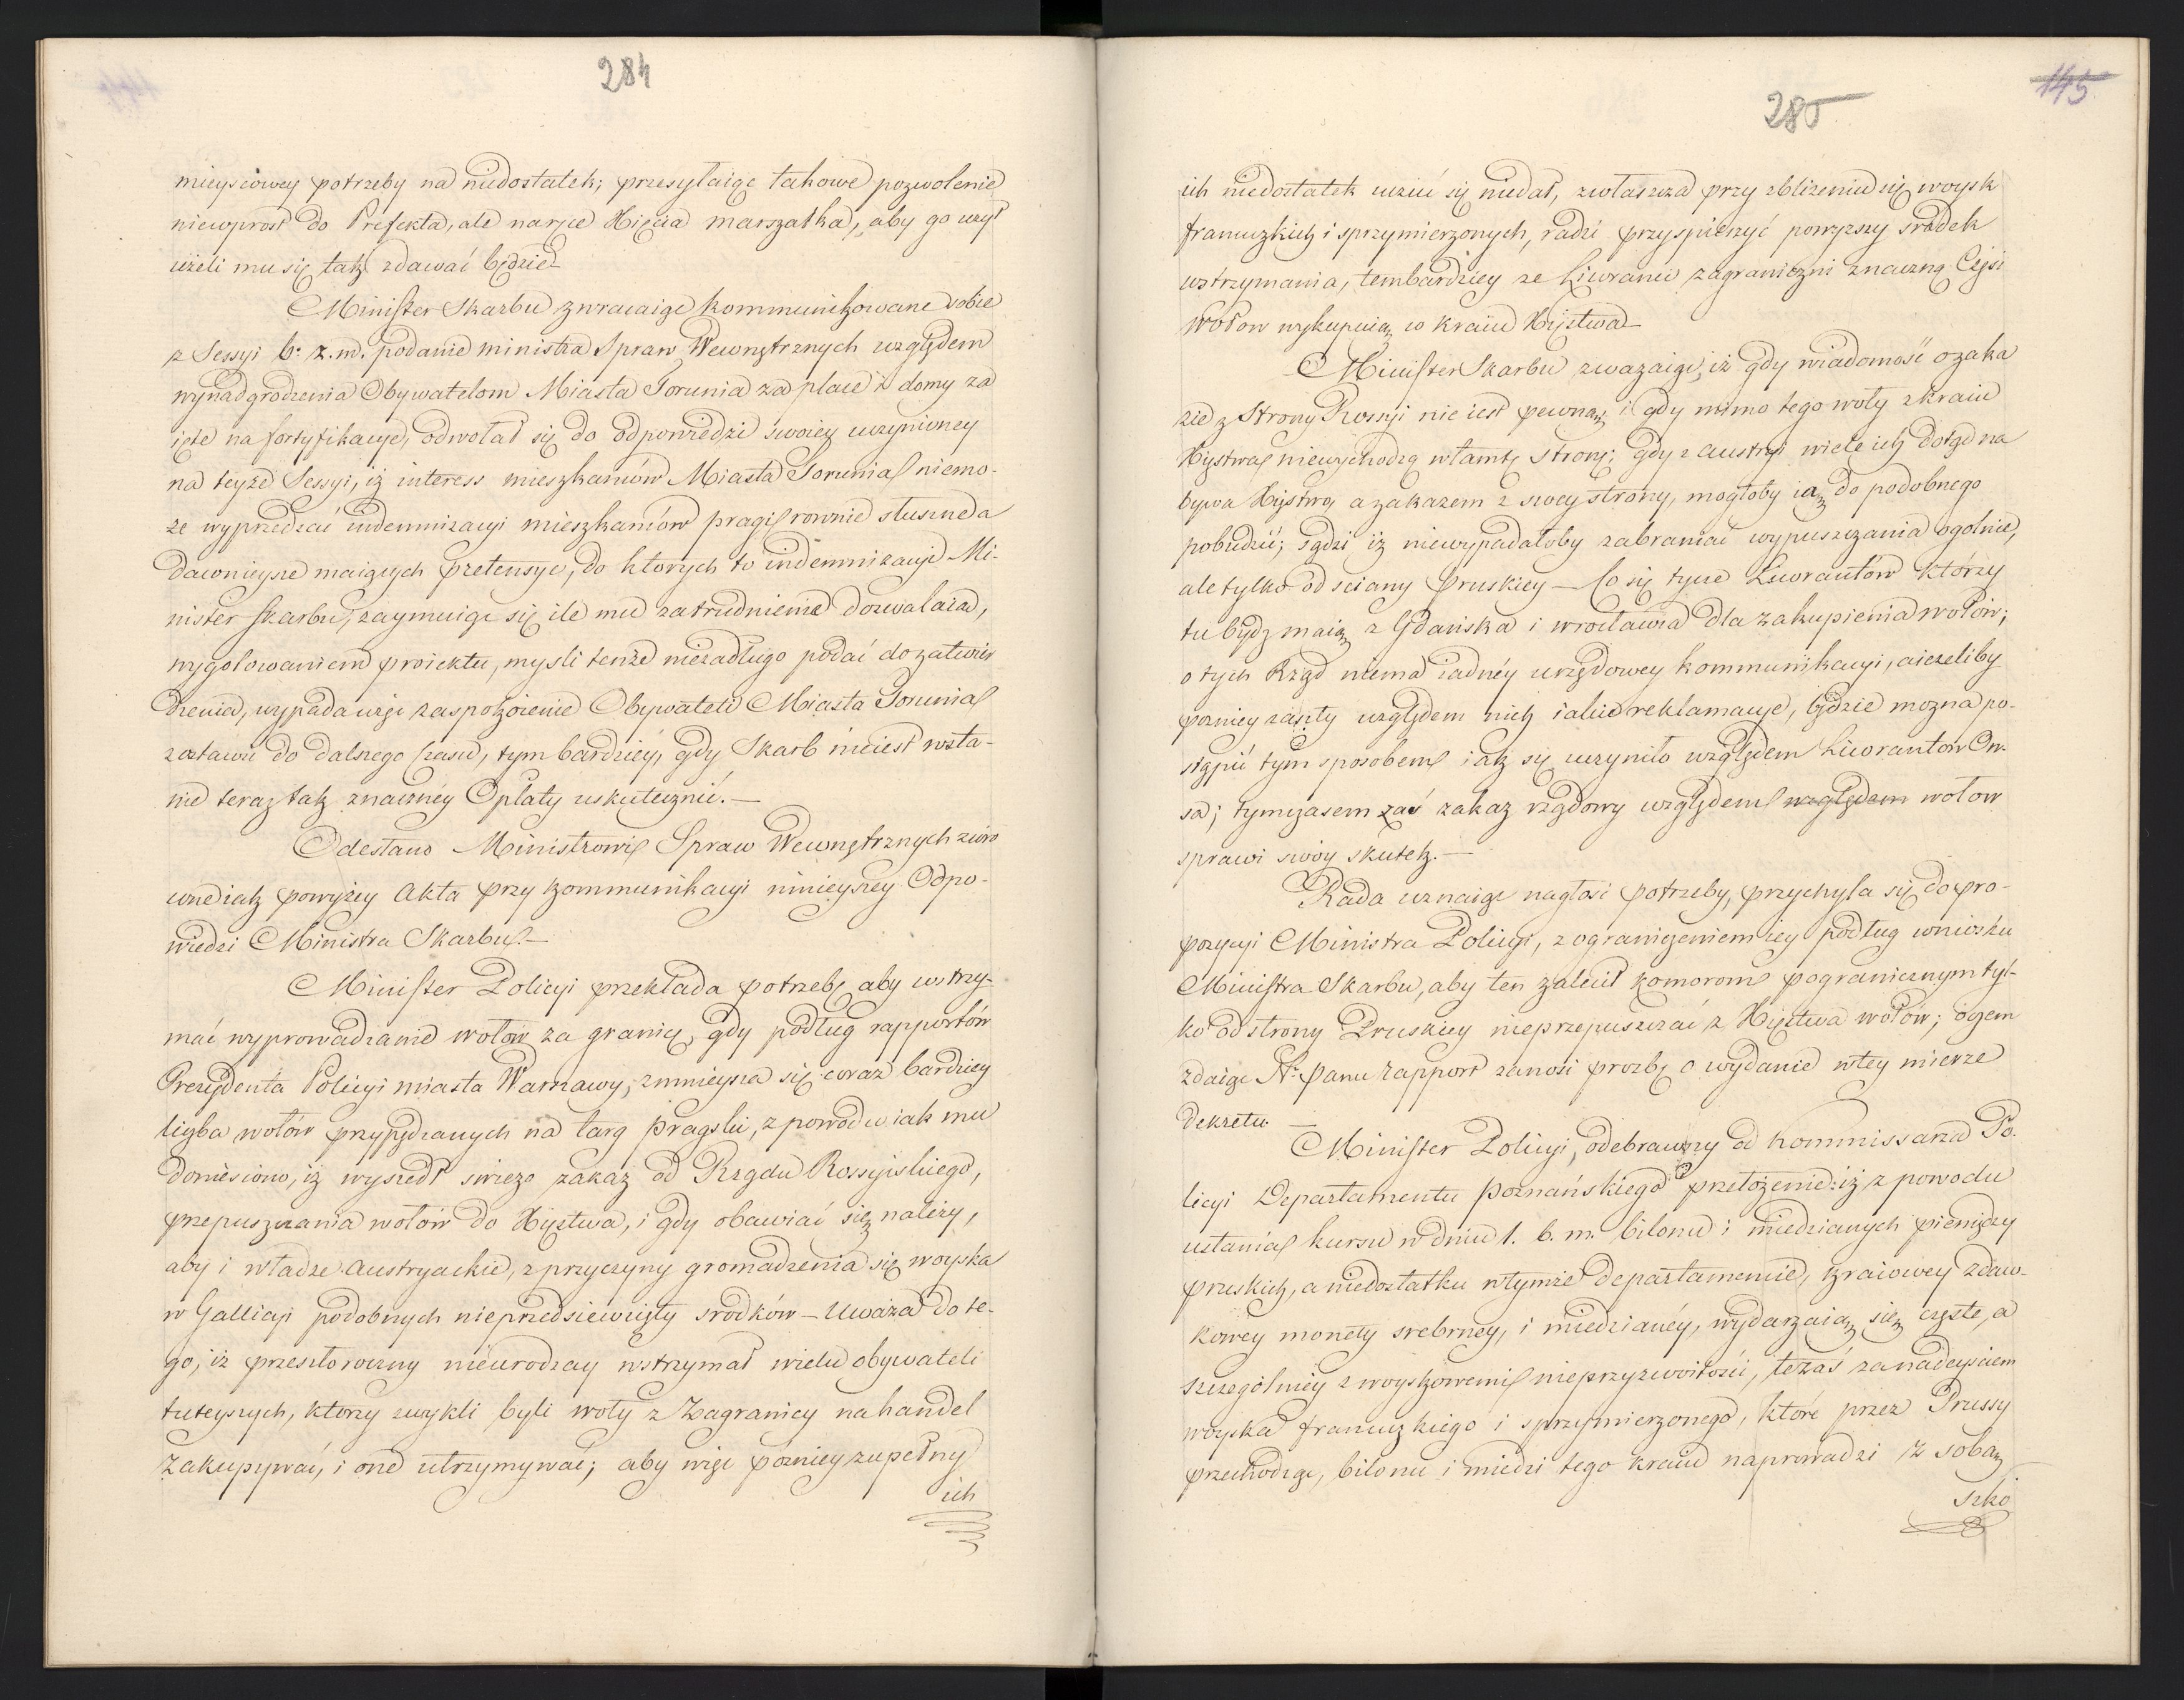 284
mieyscowey potrzeby na niedostatek; przesyłaiąc takowe pozwolenie
niewprost do Prefekta, ale na ręce Xięcia Marszałka, aby go użył
ieżeli mu się tak zdawać będzie
Minister Skarbu zwracaiąc kommunikowane sobie
z Sessyi b. z. m. podanie Ministra Spraw Wewnętrznych względem
wynadgrodzenia Obywatelom Miasta Torunia za place i domy za
ięte na fortyfikacye, odwołał się do odpowiedzi swoiey uczynioney
na teyże Sessyi, iż interess mieszkańców Miasta Torunia niemo-
że wyprzedzać indemnizacyi mieszkańców Pragi równie słuszne a
dawnieysze maiących pretensye, do których to indemnizacyi Mi-
nister Skarbu, zaymuiąc się ile mu zatrudnienia dozwalaią,
wygotowaniem proiektu, myśli tenże niezadługo podać do zatwier
dzenia, wypada więc zaspokoienie Obywateli Miasta Torunia
zostawić do dalszego czasu, tym bardziéy, gdy Skarb nieiest w sta-
nie teraz tak znacznéy Opłaty uskutecznić. —
Odesłano Ministrowi Spraw Wewnętrznych zwró
cone iak powyżey Akta przy kommunikacyi ninieyszey Odpo-
wiedzi Ministra Skarbu. —
Minister Policyi przekłada potrzebę aby wstrzy-
mać wyprowadzanie wołów za granicę, gdy podług rapportów
Prezydenta Policyi miasta Warszawy, zmnieysza się coraz bardziey
liczba wołów przypędzanych na targ pragski, z powodu iak mu
doniesiono, iż wyszedł świeżo zakaz od Rządu Rossyiskiego,
przepuszczania wołów do Xięstwa, i gdy obawiać się należy,
aby i władze Austryackie, z przyczyny gromadzenia się woyska
w Gallicyi podobnych nieprzedsięwzięły srodków — Uważa do te-
go, iż przeszłoroczny nieurodzay wstrzymał wielu obywateli
tuteyszych, którzy zwykli byli woły z Zagranicy na handel
zakupywać, i one utrzymywać; aby więc pózniey zupełny
ich
145
285
ich niedostatek uczuć się niedał, zwłaszcza przy zbliżeniu się woysk
francuzkich i sprzymierzonych, radzi przyspieszyć powyższy srodek
wstrzymania, tembardziey że Liweranci zagraniczni znaczną Częsć
Wołow wykupuią w kraiu Xięstwa —
Minister Skarbu zważaiąc, iż gdy wiadomość o zaka
zie z Strony Rossyi nie iest pewną, i gdy mimo tego woły z kraiu
Xięstwa niewychodzą w tamtę stronę; gdy z Austryi wiele ich dotąd na
bywa Xięstwo, a zakazem z swoey strony, mogłoby ią do podobnego
pobudzić; sądzi iż niewypadałoby zabraniać wypuszczania ogolnie,
ale tylko od sciany Pruskiey — Co się tycze Liwerantów którzy
tu bydz maią z Gdańska i Wrocławia dla zakupienia wołów;
o tych Rząd niema żadnéy urzędowey kommunikacyi, a ieżeliby
pozniey zaszły względem nich iakie reklamacye, będzie można po-
stąpić tym sposobem iak się uczyniło względem Liwerantów Ow-
sa; tymczasem zaś zakaz rządowy względem względem wołow
sprawi swóy skutek. —
Rada uznaiąc nagłość potrzeby, przychyla się do pro-
pozycyi Ministra Policyi, z ograniczeniem iey podług wniosku
Ministra Skarbu, aby ten zalecił komorom pogranicznym tyl-
ko od strony Pruskiey nieprzepuszczać z Xięstwa wołów; o czem
zdaiąc N. Panu rapport zanosi prozbę o wydanie w tey mierze
Dekretu. —
Minister Policyi, odebrawszy od kommissarza Po-
licyi Departamentu Poznańskiego przełożenie: iż z powodu
ustania kursu w dniu 1. b. m. bilonu i miedzianych pieniędzy
pruskich, a niedostatku w tymże departamencie, kraiowey zdaw-
kowey monety srebrney, i miedzianéy, wydarzaią się częste, a
szczególniey z woyskowemi nieprzyzwoitości, te zaś za nadeysciem
woyska francuzkiego i sprzymierzonego, które przez Prussy
przechodząc, bilonu i miedzi tego kraiu naprowadzi z sobą
szko